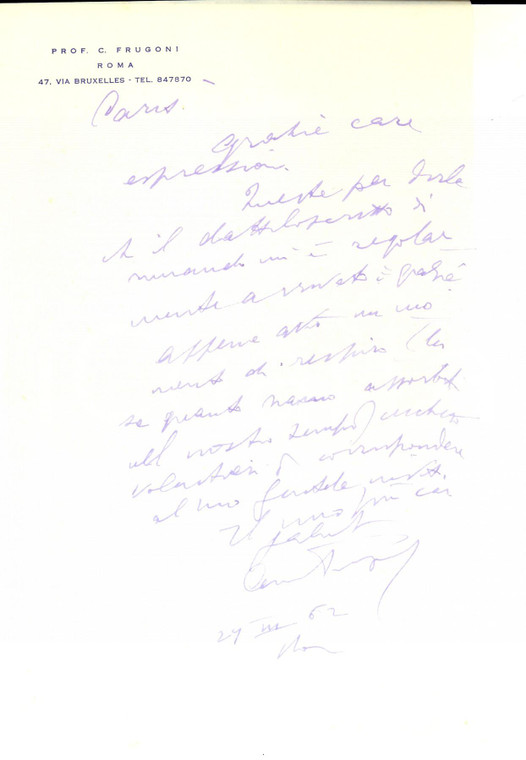 PROF. C. FRUGONI
ROMA
47, VIA BRUXELLES - TEL. 847870
Cariss.
Grazie care
espressioni.
Queste per dirle
il dattiloscritto di
mi è regolar
mente arrivato e grazie
appena avrò un mo
mento di respiro (lei
sa quanto siamo assorbiti
nel nostro tempo)
volentieri corrispondere
al suo gentile invito.
Il mio più car
saluto
29 III 62